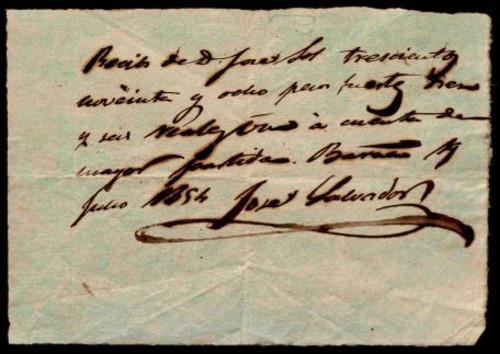 Recibí de D. José Sol trescientos
noventa y ocho pesos fuertes
y seis reales von à cuenta de
mayor partida.
Julio 1854 José Salvador